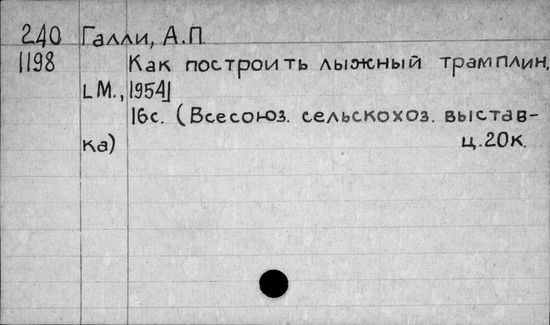 240 Галли, А.П.
1198 Как построить лыжный трамплин,
[М., 1954]
16с. (Всесоюз. сельскохоз. выстав-
ка) ц. 20к.